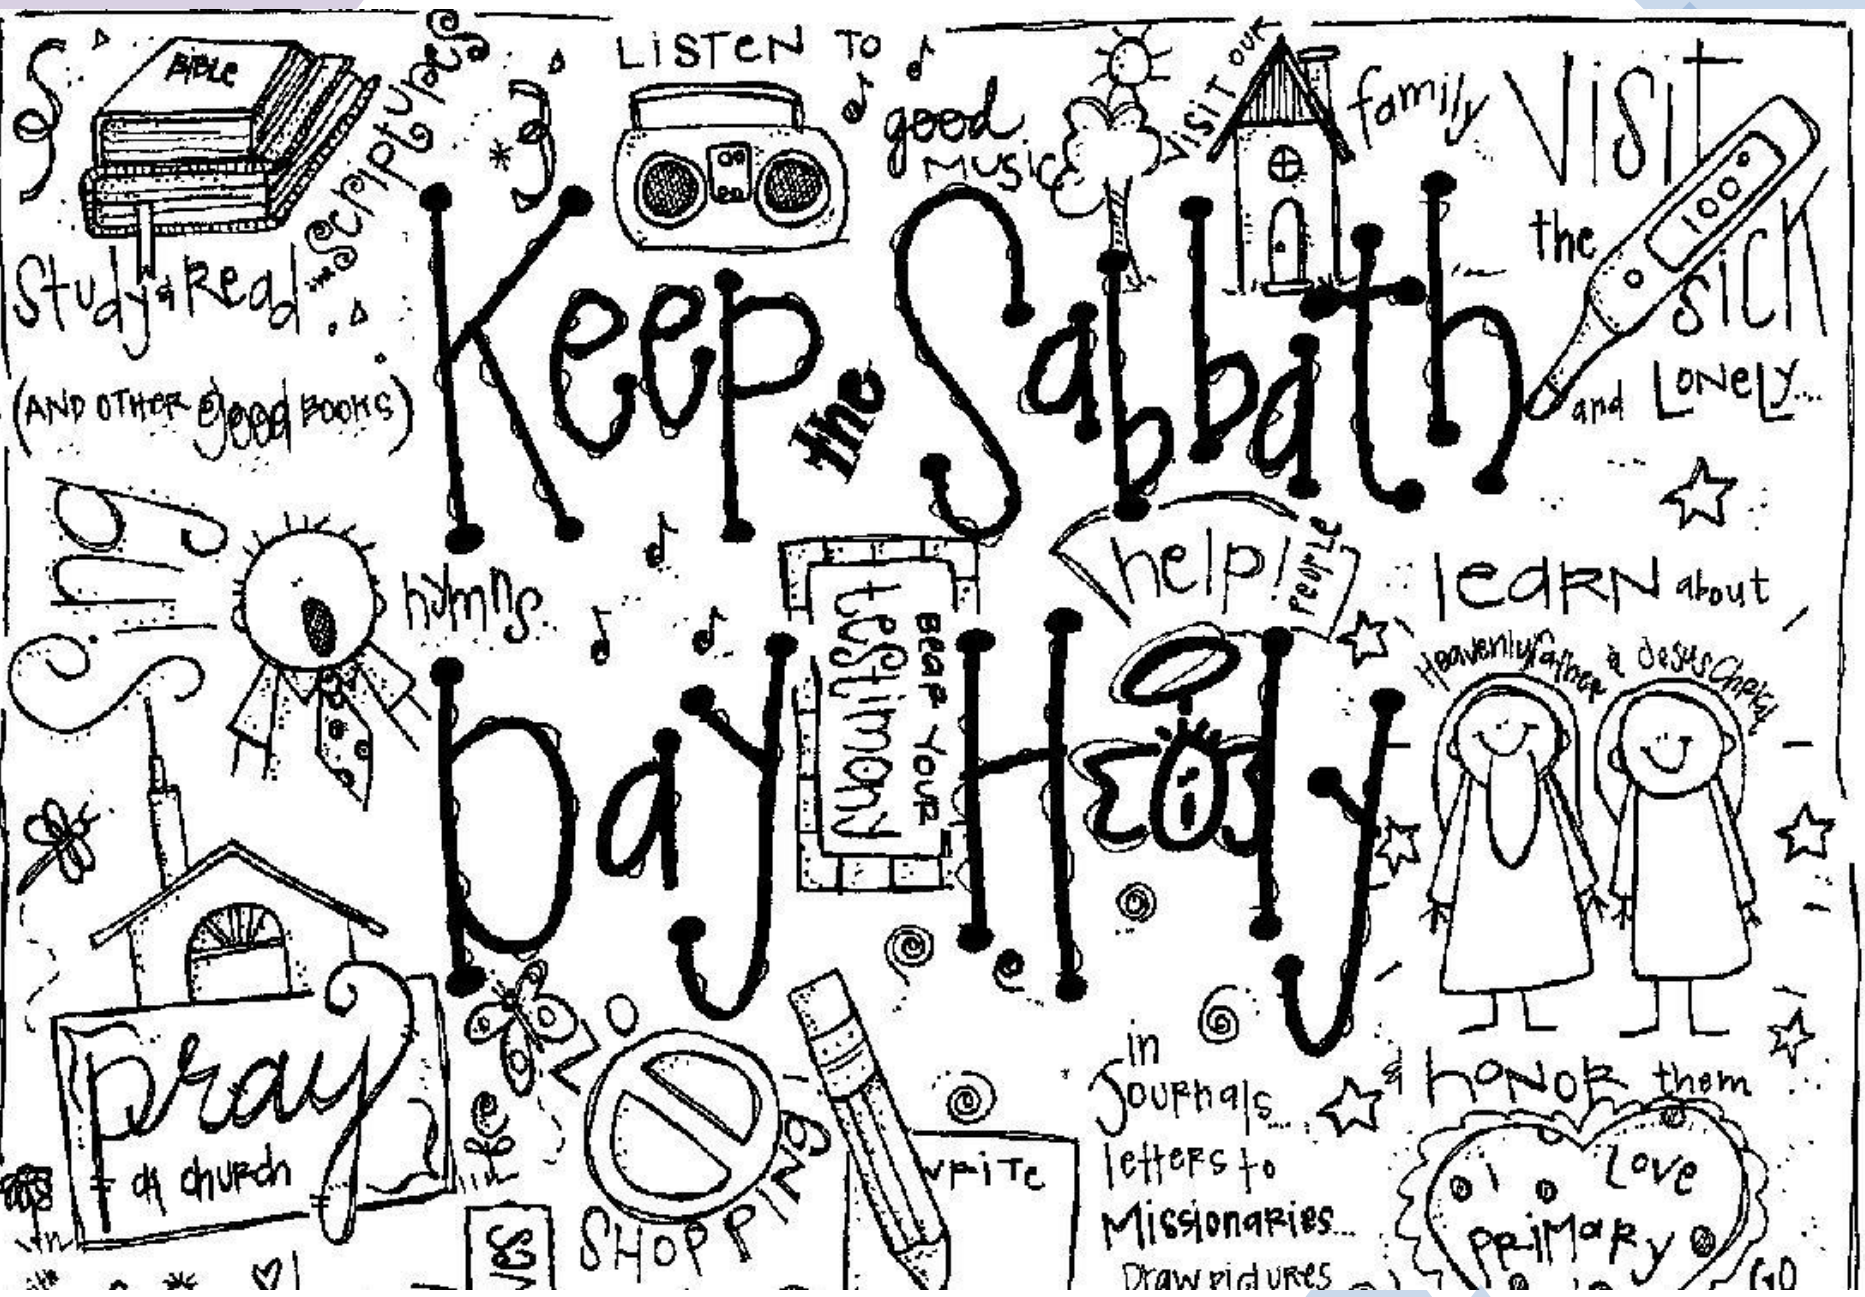 BIBLE
Study & Read
the Scriptures
(AND OTHER good BOOKS)
LISTEN TO
good
MUSIC
VISIT OUR
family
VISIT
the
SICK
and LONELY...
100°
Keep the Sabbath
Day Holy
hymns
BEAR YOUR
testimony
help!
PEOPLE
LEARN about
Heavenly Father & Jesus Christ
& HONOR them
pray
at church
NO
SHOPPING
write
in
Journals...
letters to
Missionaries...
Draw pictures
I Love
PRIMARY
GO